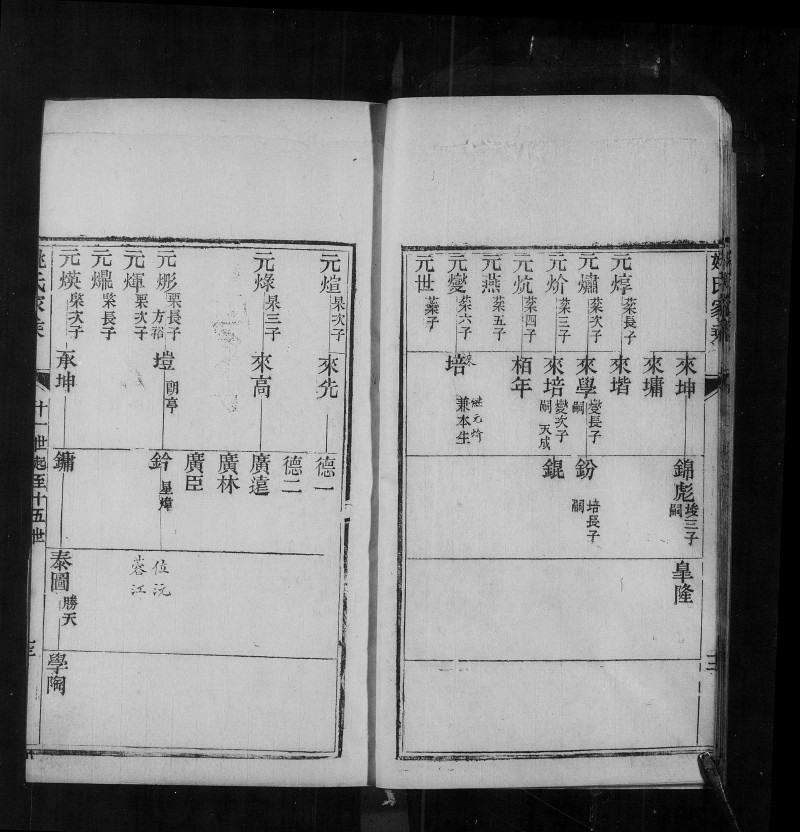 姚氏家乘
來坤
錦彪 堎三子嗣
皐隆
來墉
元焞 棻長子
來堦
元熽 棻次子
來學 燮長子嗣
鈖 培長子嗣
元炌 棻三子
來培 燮次子嗣 天成
錕
元炕 棻四子
栢年
元燕 棻五子
元燮 棻六子
來培 継元炌 兼本生
元世 蘂子
元煊 杲次子
來先
德一
德二
元燦 杲三子
來高
廣遠
廣林
廣臣
元彨 栗長子 方裕
塏 朗亭
鈐 星煒
位沅
蓉江
元煇 栗次子
元𤋮 榘長子
元煐 榘次子
承坤
鏞
泰圖 勝天
學陶
姚氏家乘
十一世起至十五世